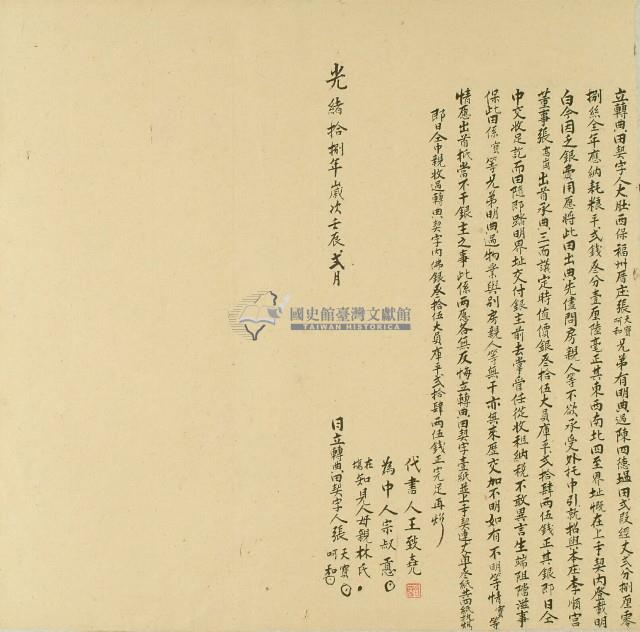 立轉典田契字人大肚西保福州厝庄張天寶呵和兄弟有明典過陳四德塭田弍段經丈弍分捌厘零
捌絲全年應納耗粮平弍錢叁分壹厘陸毫正其東西南北四至界址概在上手契內登載明
白今因乏銀費用愿將此田出典先儘問房親人等不欲承受外托中引就招與本庄李順宫
董事張出首承典三面議定時值價銀叁拾伍大員庫平弍拾肆兩伍錢正其銀即日仝
中交收足訖而田隨即踏明界址交付銀主前去掌管任從收租納稅不敢異言生端阻擋滋事
保此田係寶等兄弟明典過物業與別房親人等無干亦無來歷交加不明如有不明等情寶等
情應出首抵當不干銀主之事此係兩愿各無反悔立轉典田契字壹紙並上手契連丈單叁紙共四紙執炤
即日仝中親收過轉典契字內佛銀叁拾伍大員庫平弍拾肆兩伍錢正完足再炤
代書人王致堯
為中人宗叔意
在塲知見人母親林氏
光緒拾捌年歲次壬辰弍月 日立轉典田契字人張天寶呵和
國史館臺灣文獻館
TAIWAN HISTORICA